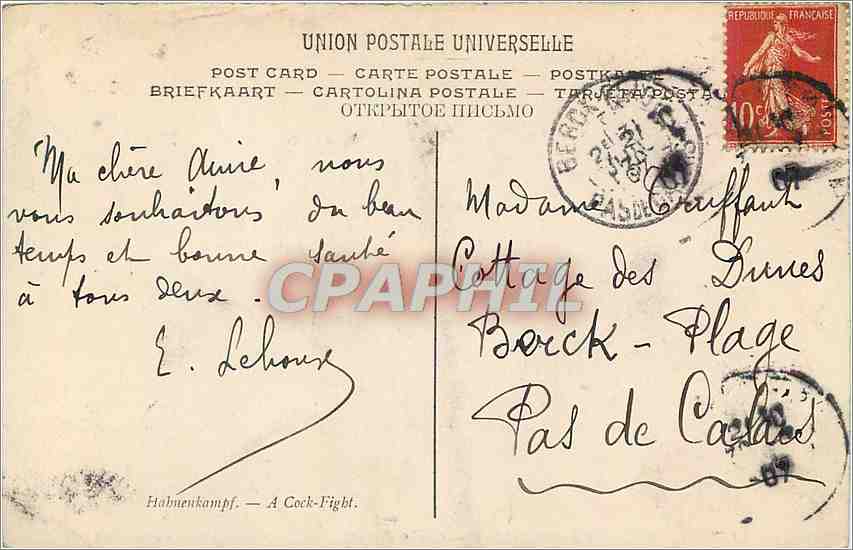 UNION POSTALE UNIVERSELLE
POST CARD — CARTE POSTALE — POSTKARTE
BRIEFKAART — CARTOLINA POSTALE — TARJETA POSTAL
ОТКРЫТОЕ ПИСЬМО
REPUBLIQUE FRANÇAISE
10c POSTES
BERCK
PAS DE
07
Ma chère amie, nous
vous souhaitons du beau
temps et bonne santé
à tous deux.
E. Lehoux
Madame Truffaut
Cottage des Dunes
Berck - Plage
Pas de Calais
07
CPAPHIL
Hahnenkampf. — A Cock-Fight.